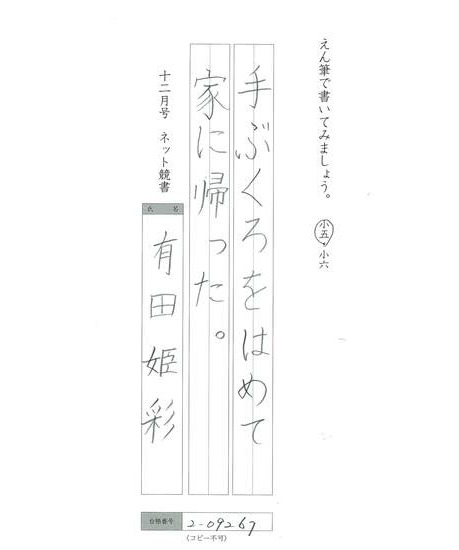 えん筆で書いてみましょう。
小五・小六
手ぶくろをはめて
家に帰った。
十二月号 ネット競書
氏名
有田姫彩
台帳番号
2-09267
(コピー不可)